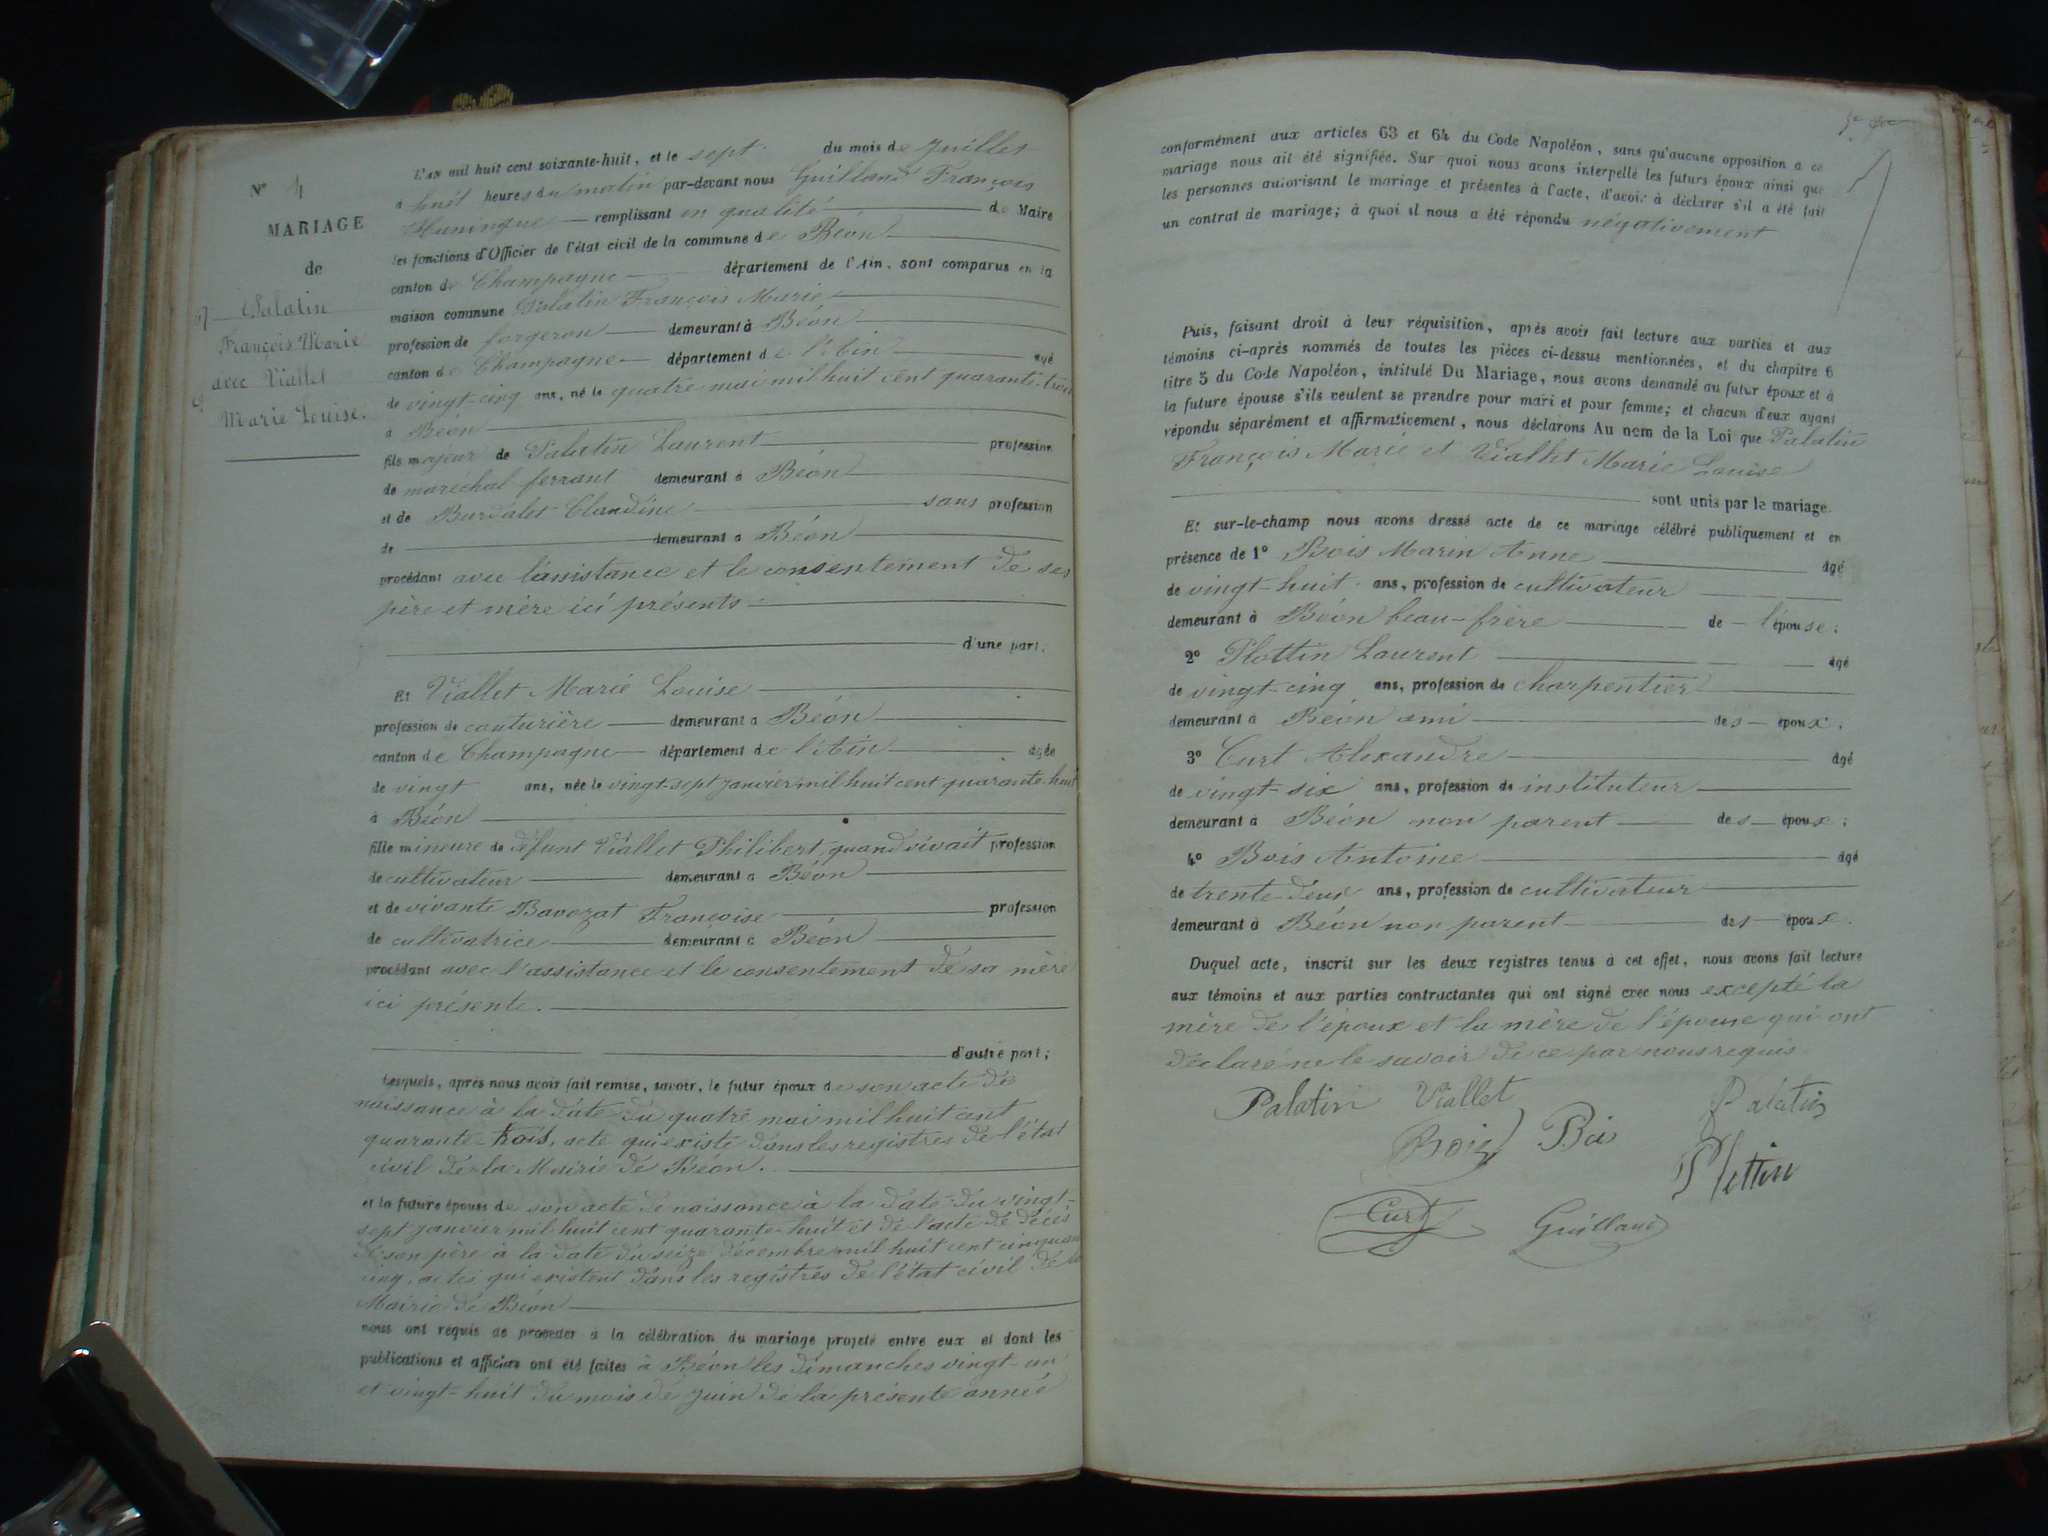 N° 4
MARIAGE
de
Palatin
François Marie
avec Viallet
Marie Louise.
L'an mil huit cent soixante-huit, et le sept du mois de Juillet
à huit heures du matin par-devant nous Guilland François
remplissant en qualité de Maire
les fonctions d'Officier de l'état civil de la commune de Béon
canton de Champagne département de l'Ain, sont comparus en la
maison commune Palatin François Marie
profession de forgeron demeurant à Béon
canton de Champagne département de l'Ain âgé
de vingt-cinq ans, né le quatre mai mil huit cent quarante-trois
à Béon
fils majeur de Palatin Laurent profession
de marechal ferrant demeurant à Béon
et de Burdalet Claudine sans profession
de demeurant à Béon
procédant avec l'assistance et le consentement de ses
père et mère ici présents
d'une part.
Et Viallet Marie Louise
profession de couturière demeurant à Béon
canton de Champagne département de l'Ain âgée
de vingt ans, née le vingt-sept janvier mil huit cent quarante-huit
à Béon
fille mineure de défunt Viallet Philibert, quand vivait profession
de cultivateur demeurant à Béon
et de vivante Bavozat Françoise profession
de cultivatrice demeurant à Béon
procédant avec l'assistance et le consentement de sa mère
ici présente.
d'autre part;
Lesquels, après nous avoir fait remise, savoir, le futur époux de son acte de
naissance à la date du quatre mai mil huit cent
quarante-trois, acte qui existe dans les registres de l'état
civil de la Mairie de Béon.
et la future épouse de son acte de naissance à la date du vingt-
sept janvier mil huit cent quarante-huit et de l'acte de décès
de son père à la date du seize décembre mil huit cent cinquante
cinq, actes qui existent dans les registres de l'état civil de la
Mairie de Béon
nous ont requis de procéder à la célébration du mariage projeté entre eux et dont les
publications et affiches ont été faites à Béon les dimanches vingt-un
et vingt-huit du mois de juin de la présente année
conformément aux articles 63 et 64 du Code Napoléon, sans qu'aucune opposition à ce
mariage nous ait été signifiée. Sur quoi nous avons interpellé les futurs époux ainsi que
les personnes autorisant le mariage et présentes à l'acte, d'avoir à déclarer s'il a été fait
un contrat de mariage; à quoi il nous a été répondu négativement
Puis, faisant droit à leur réquisition, après avoir fait lecture aux parties et aux
témoins ci-après nommés de toutes les pièces ci-dessus mentionnées, et du chapitre 6
titre 5 du Code Napoléon, intitulé Du Mariage, nous avons demandé au futur époux et à
la future épouse s'ils veulent se prendre pour mari et pour femme; et chacun d'eux ayant
répondu séparément et affirmativement, nous déclarons Au nom de la Loi que Palatin
François Marie et Viallet Marie Louise
sont unis par le mariage.
Et sur-le-champ nous avons dressé acte de ce mariage célébré publiquement et en
présence de 1° Bois Marin Anne âgé
de vingt-huit ans, profession de cultivateur
demeurant à Béon beau-frère de l'épouse;
2° Plottin Laurent âgé
de vingt-cinq ans, profession de charpentier
demeurant à Béon ami des époux;
3° Curt Alexandre âgé
de vingt-six ans, profession de instituteur
demeurant à Béon non parent des époux;
4° Bois Antoine âgé
de trente-deux ans, profession de cultivateur
demeurant à Béon non parent des époux.
Duquel acte, inscrit sur les deux registres tenus à cet effet, nous avons fait lecture
aux témoins et aux parties contractantes qui ont signé avec nous excepté la
mère de l'époux et la mère de l'épouse qui ont
déclaré ne le savoir de ce par nous requis
Palatin Viallet Palatin
Bois Bois
Plottin
Curt Guilland